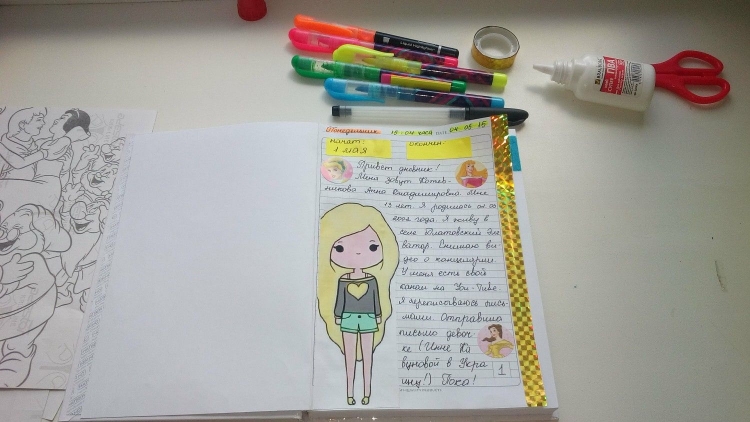 Понедельник
НАЧАТ:
1 МАЯ
ОКОНЧЕН:
Привет дневник!
Меня зовут Котев-
никова Анна Владимировна. Мне
13 лет. Я родилась
2002 года. Я живу в
селе Платовский Эле
ватор. Снимаю ви
део о канцелярии.
У меня есть свой
канал на You-Tube.
Я переписываюсь пись-
мами. Отправила
письмо девоч-
ке (Инне Ка
вуновой в Укра
ину!) Пока!
1
ПВА